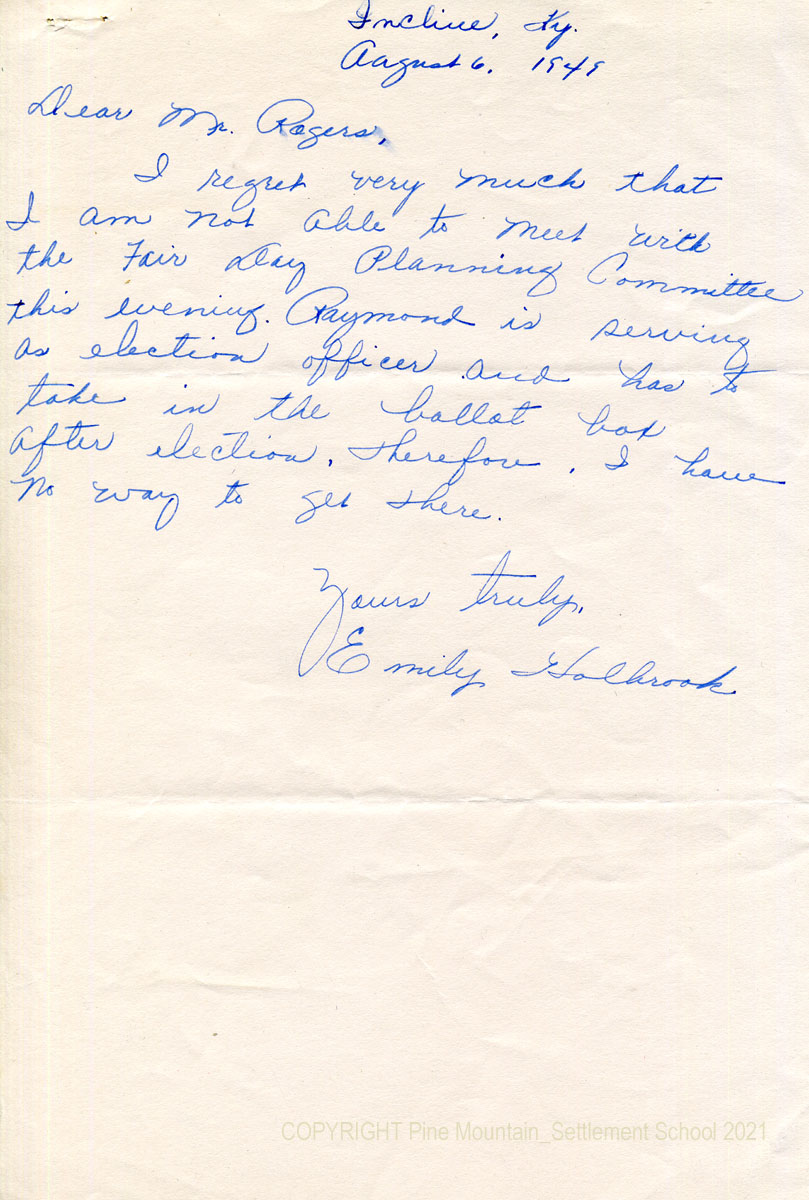 Incline, Ky.
August 6, 1949
Dear Mr. Rogers,
I regret very much that
I am not able to meet with
the Fair Day Planning Committee
this evening. Raymond is serving
as election officer and has to
take in the ballot box
after election, therefore, I have
no way to get there.
Yours truly,
Emily Holbrook
COPYRIGHT Pine Mountain_Settlement School 2021